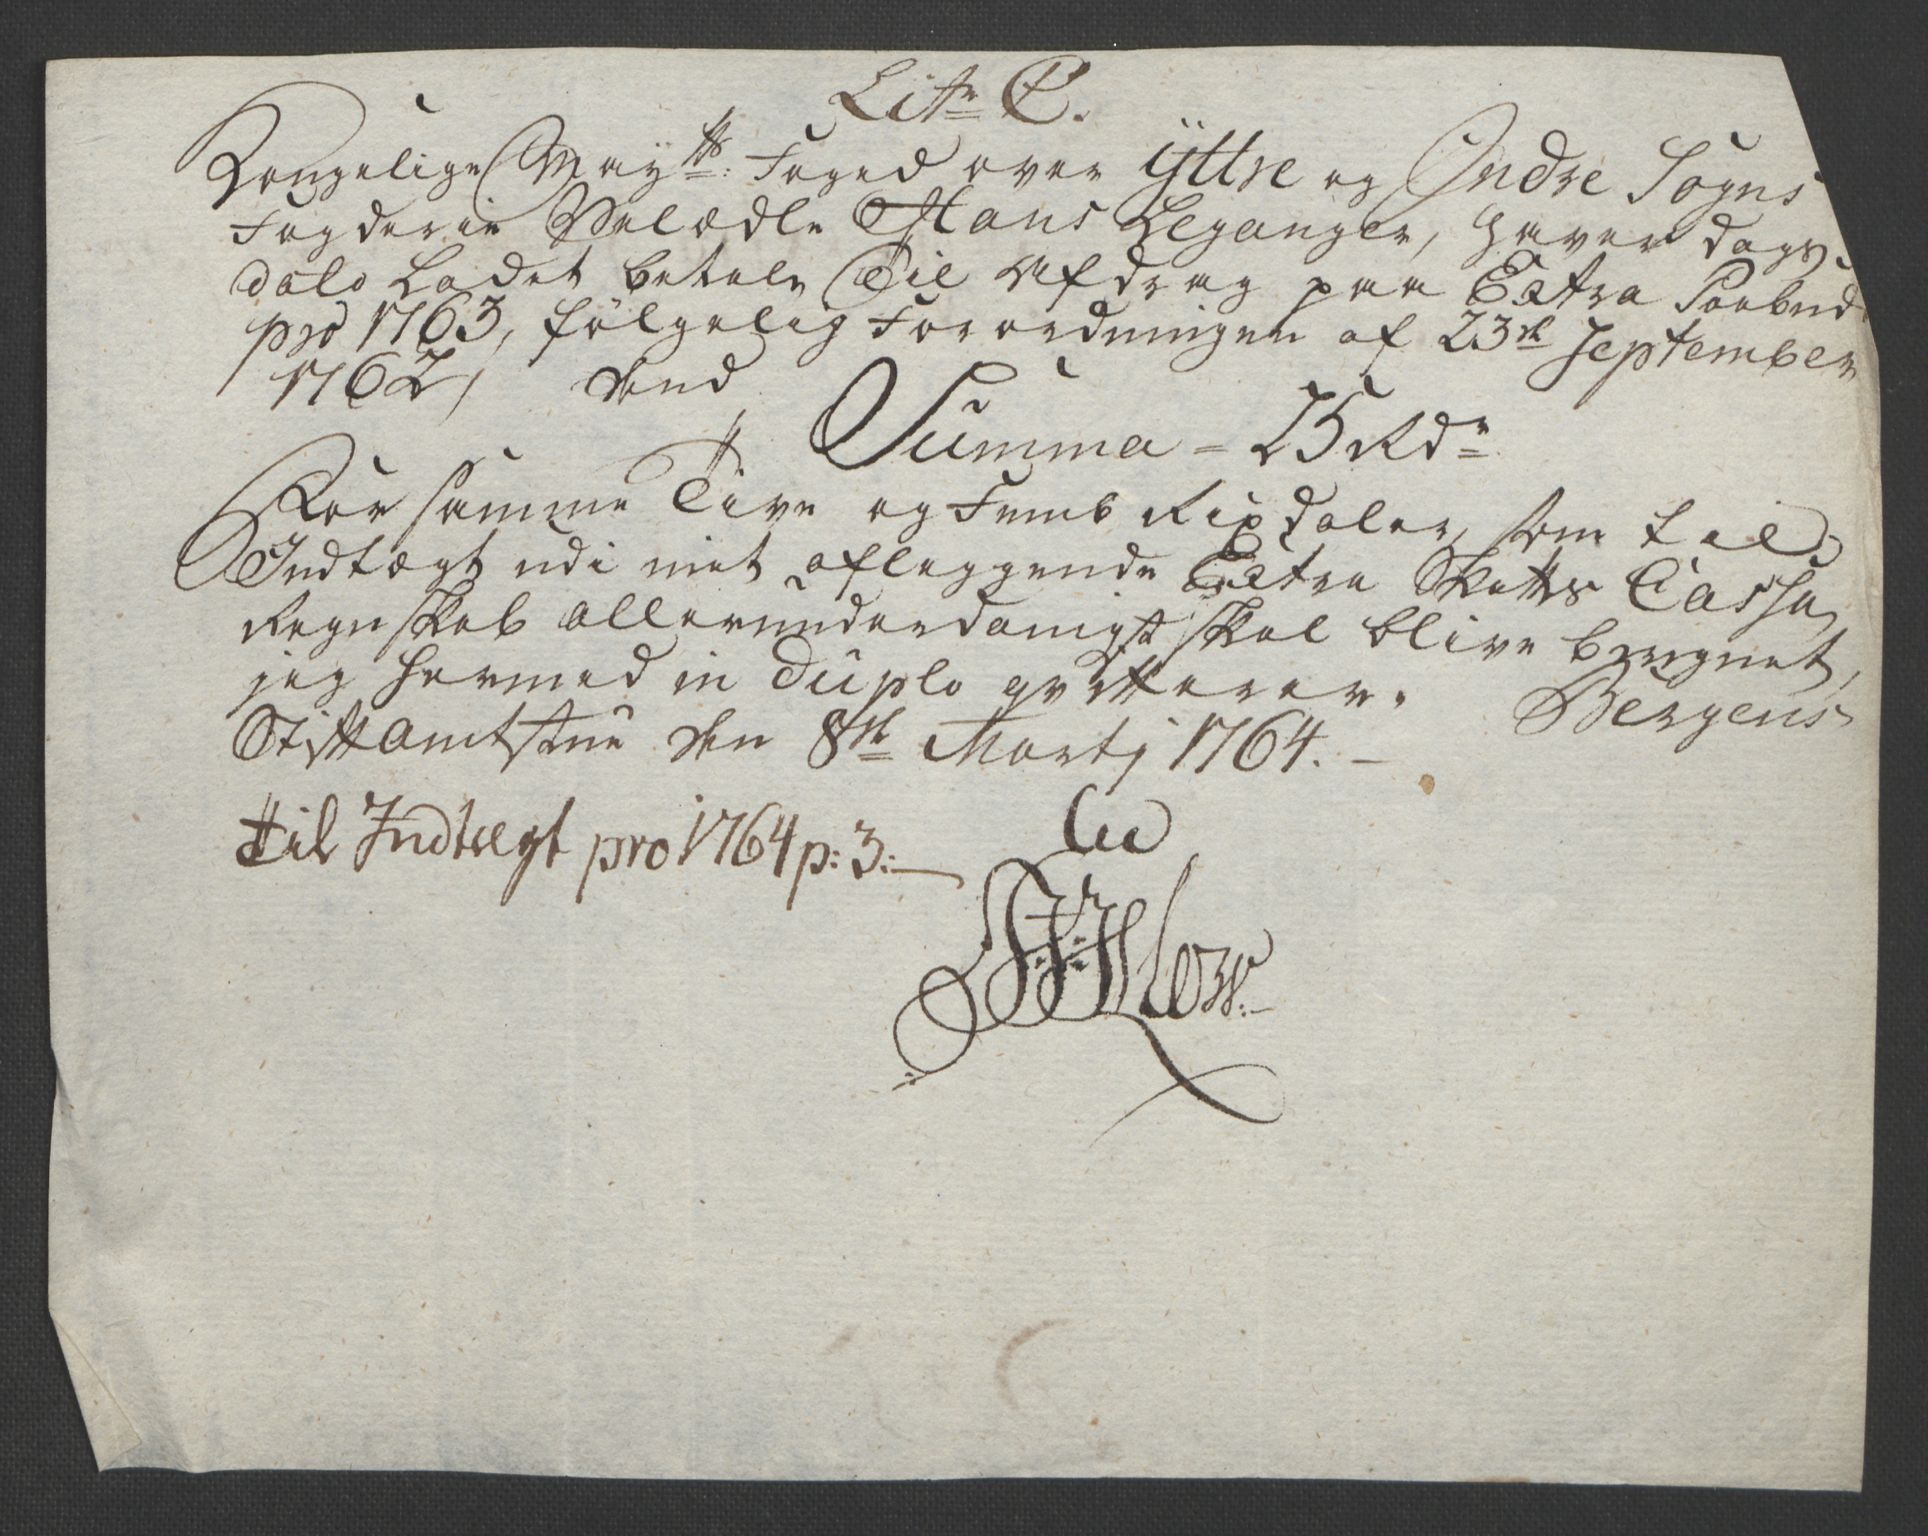 Litr C.
Kongelige Mayts: Foged over Ÿttre og Indre Sogns
Fogderie Velædle Hans Leganger, haver dags
dato Ladet betale Til Afdrag paa Extra Paabud
pro 1763, følgelig Forordningen af 23de September
1762, dend
Summa = 25 Rdr
For samme Tive og Femb Rixdaler, som til
Indtægt udi mit aflæggende Extra Skatts Cassa
Regnskab allerunderdanigst skal blive beregnet,
jeg hermed in duplo qvitterer. Bergens
Stiftamtstue den 8de Martj 1764. –
til Indtægt pro 1764 p: 3: